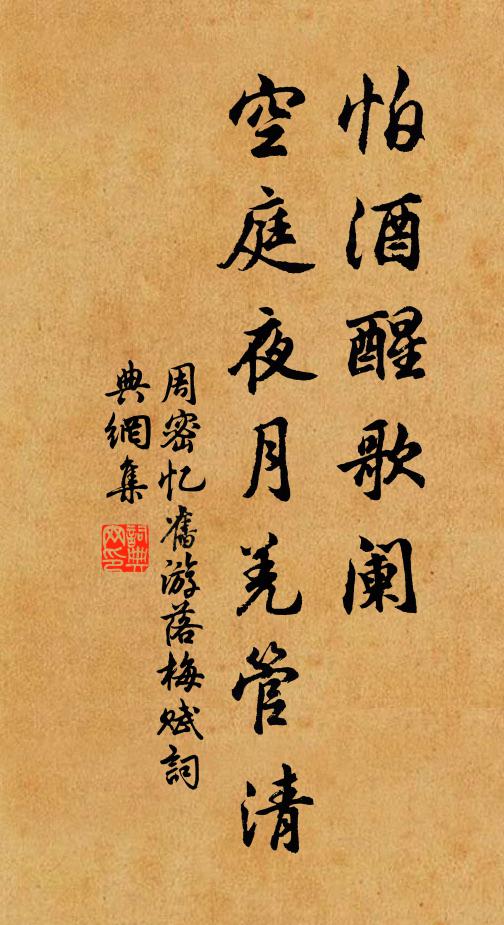 怕酒醒歌阑
空庭夜月羌管清
周密忆舊游落梅赋詞
典網集
詞典网印